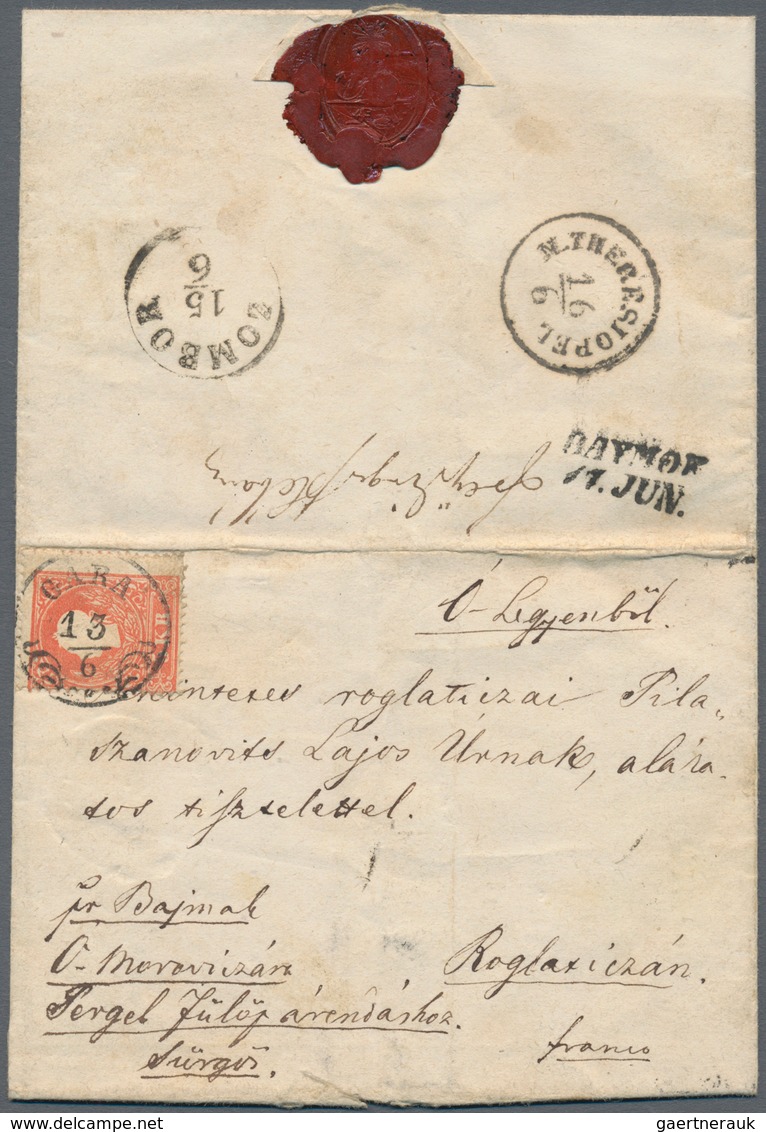 ZOMBOR
15
6
M. THERESIOPEL
16
6
BAYMOK
17. JUN.
GARA
13
6
Ó-Legyenből.
roglaticzai Pila-
szanovits Lajos Úrnak, aláza-
tos tisztelettel.
pr Bajmak
Ó-Moroviczára
Pergel Fülöp árendáshoz.
sürgős.
Roglaticzán.
franco
gaertnerauk